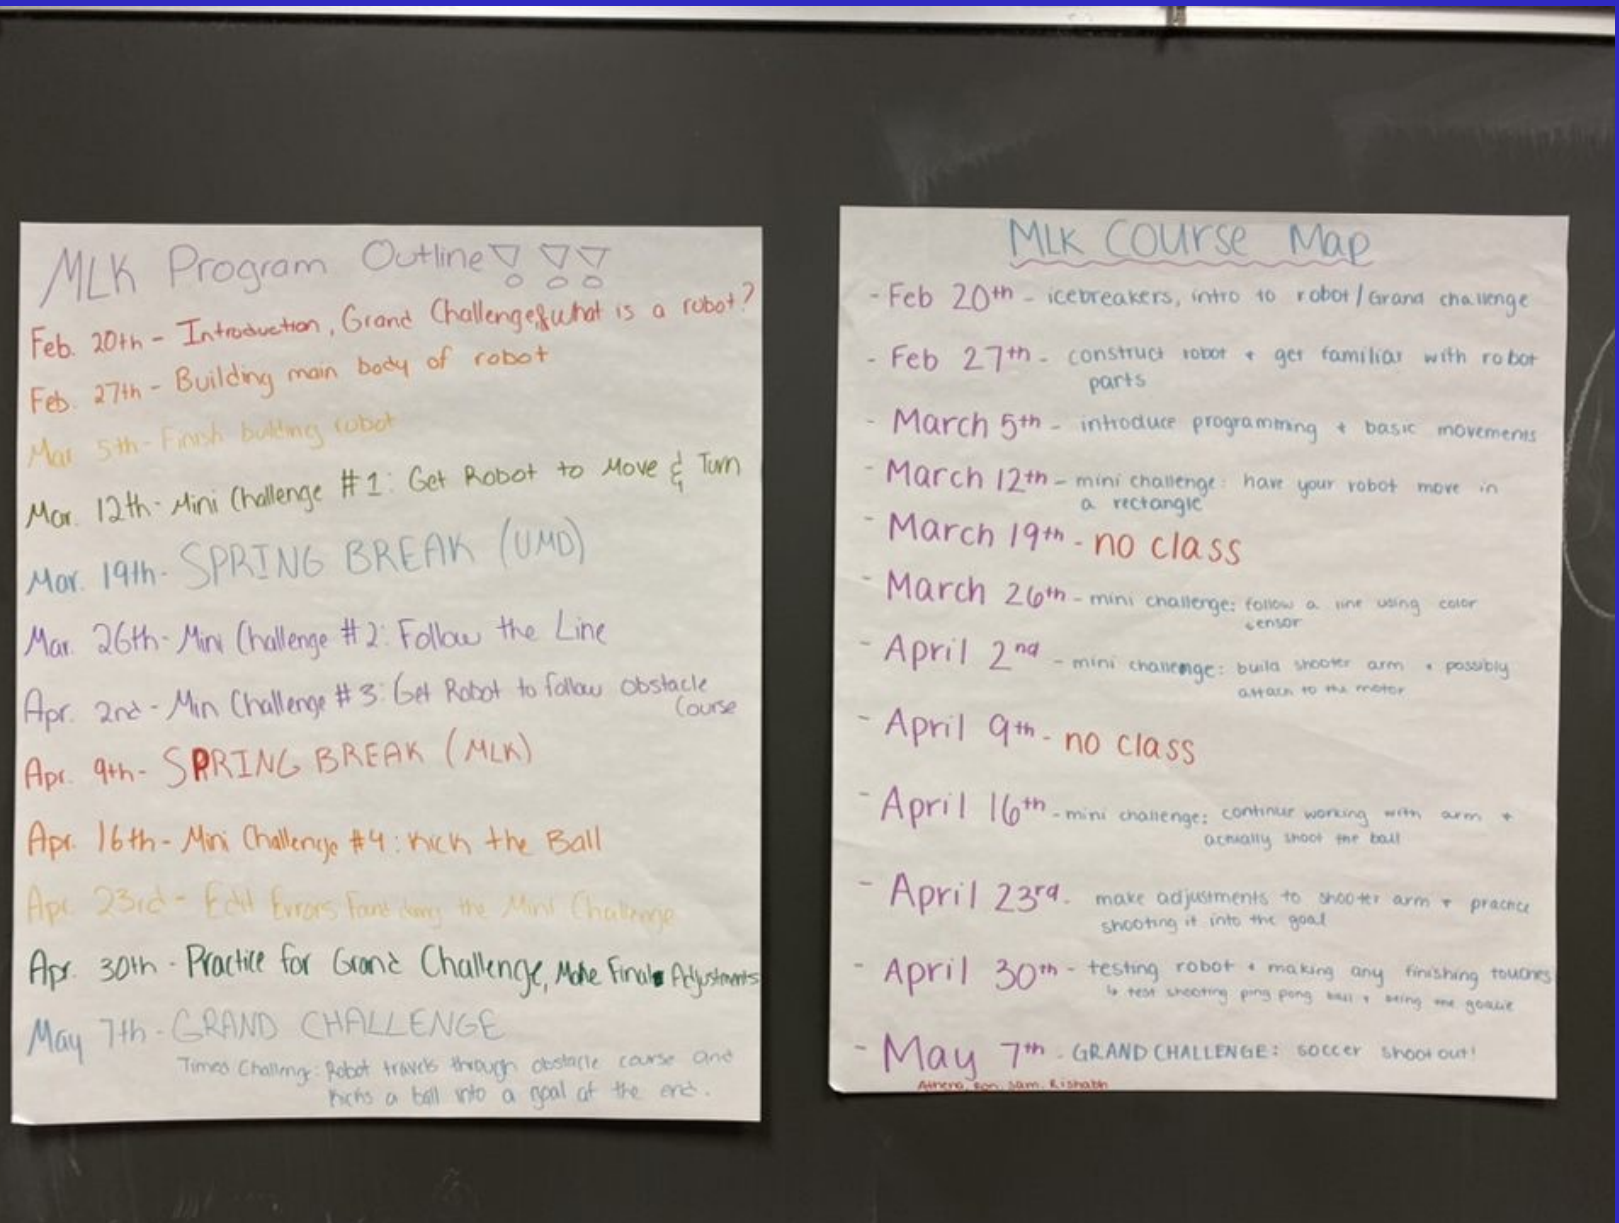 MLK Program Outline!!!
Feb. 20th - Introduction, Grand Challenge, & what is a robot?
Feb. 27th - Building main body of robot
Mar. 5th - Finish building robot
Mar. 12th - Mini Challenge #1: Get Robot to Move & Turn
Mar. 19th - SPRING BREAK (UMD)
Mar. 26th - Mini Challenge #2: Follow the Line
Apr. 2nd - Min Challenge #3: Get Robot to follow obstacle
Course
Apr. 9th - SPRING BREAK (MLK)
Apr. 16th - Mini Challenge #4: Kick the Ball
Apr. 23rd - Edit Errors the Mini Challenge
Apr. 30th - Practice for Grand Challenge, Make Final Adjustments
May 7th - GRAND CHALLENGE
Timed Challeng: Robot travels through obstacle course and
kicks a ball into a goal at the end.
MLK COURSE MAP
- Feb 20th - icebreakers, intro to robot/Grand challenge
- Feb 27th - construct robot + get familiar with robot
parts
- March 5th - introduce programming + basic movements
- March 12th - mini challenge: have your robot move in
a rectangle
- March 19th - no class
- March 26th - mini challenge: follow a line using color
sensor
- April 2nd - mini challenge: build shooter arm + possibly
attach to the motor
- April 9th - no class
- April 16th - mini challenge: continue working with arm +
actually shoot the ball
- April 23rd - make adjustments to shooter arm + practice
shooting it into the goal
- April 30th - testing robot + making any finishing touches
↳ test shooting ping pong ball + being the goalie
- May 7th - GRAND CHALLENGE: soccer shoot out!
Athena, Ron, Sam, Rishabh